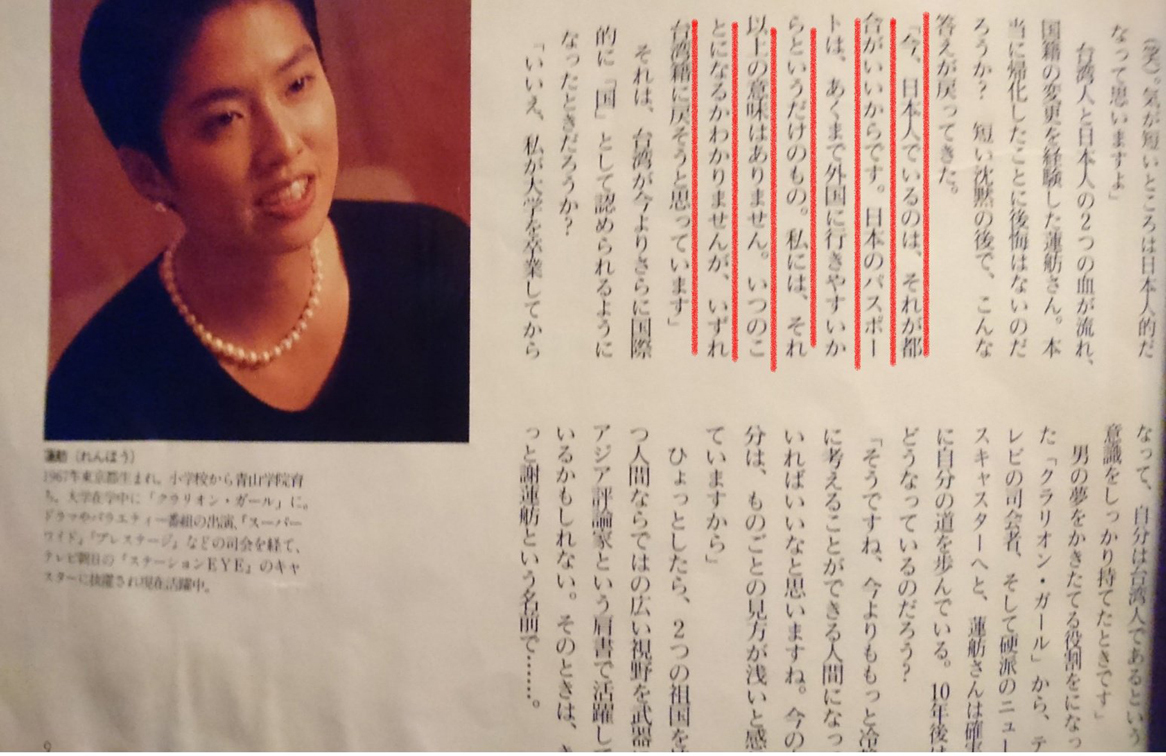 （笑）。気が短いところは日本人的だ
なって思いますよ」
台湾人と日本人の2つの血が流れ、
国籍の変更を経験した蓮舫さん。本
当に帰化したことに後悔はないのだ
ろうか？　短い沈黙の後で、こんな
答えが戻ってきた。
「今、日本人でいるのは、それが都
合がいいからです。日本のパスポー
トは、あくまで外国に行きやすいか
らというだけのもの。私には、それ
以上の意味はありません。いつのこ
とになるかわかりませんが、いずれ
台湾籍に戻そうと思っています」
それは、台湾が今よりさらに国際
的に「国」として認められるように
なったときだろうか？
「いいえ、私が大学を卒業してから
なって、自分は台湾人であるという
意識をしっかり持てたときです」
男の夢をかきたてる役割をになっ
た「クラリオン・ガール」から、テ
レビの司会者、そして硬派のニュー
スキャスターへと、蓮舫さんは確実
に自分の道を歩んでいる。10年後は
どうなっているのだろう？
「そうですね、今よりももっと冷
に考えることができる人間になっ
いればいいなと思いますね。今の
分は、ものごとの見方が浅いと感
ていますから」
ひょっとしたら、2つの祖国を
つ人間ならではの広い視野を武器
アジア評論家という肩書で活躍し
いるかもしれない。そのときは、
っと謝蓮舫という名前で……。
蓮舫（れんほう）
1967年東京都生まれ。小学校から青山学院育
ち。大学在学中に「クラリオン・ガール」に。
ドラマやバラエティー番組の出演、「スーパー
ワイド」「プレステージ」などの司会を経て、
テレビ朝日の『ステーションEYE』のキャ
スターに抜擢され現在活躍中。
9